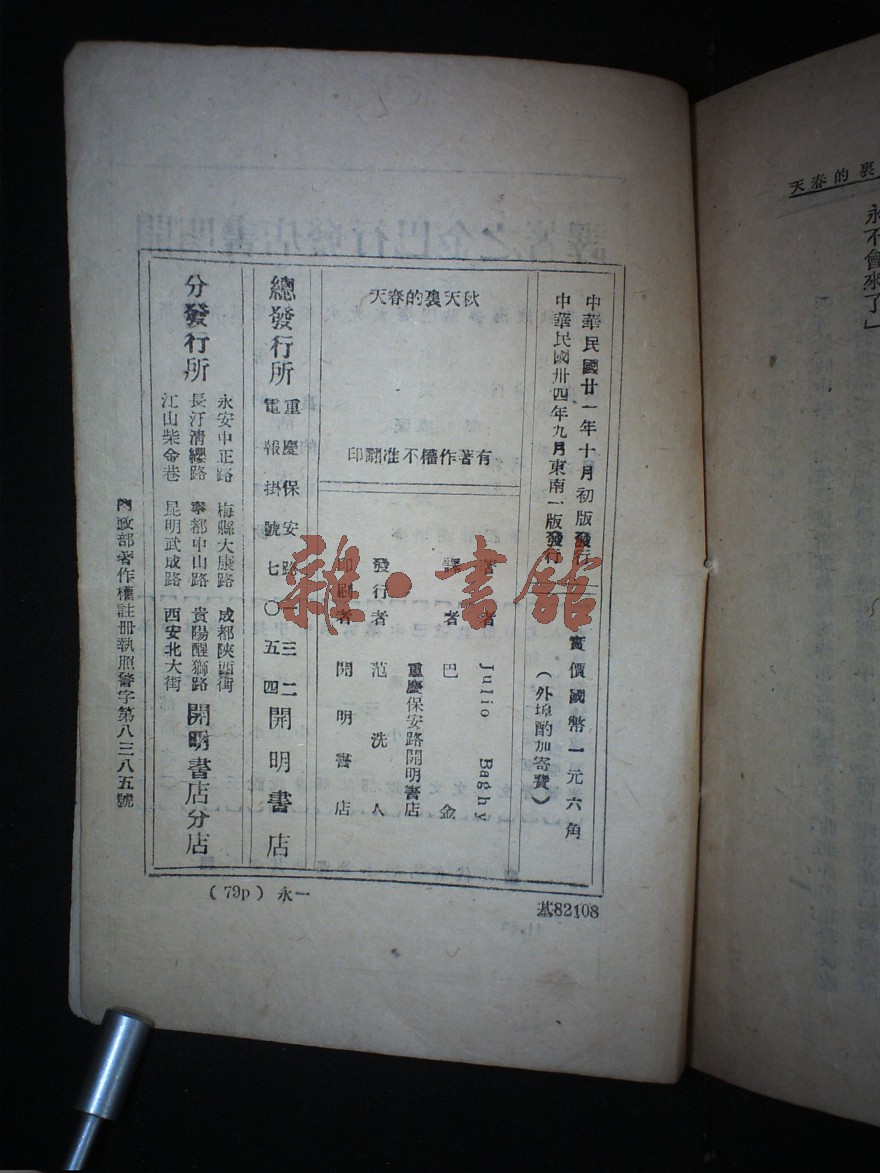 永不會來了」
天春的裏
中華民國廿一年十月初版發行
中華民國卅四年九月東南一版發行
實價國幣一元六角
(外埠酌加寄費)
天春的裏天秋
印翻准不權作著有
著者 Julio Baghy
譯者 巴金
發行者 重慶保安路開明書店
范洗人
印刷者 開明書店
總發行所 重慶保安路一三二
電報掛號七〇五四 開明書店
分發行所
永安中正路 梅縣大康路 成都陝西街
長汀清纓路 寧都中山路 貴陽醒獅路
江山柴金巷 昆明武成路 西安北大街
開明書店分店
內政部著作權註冊執照警字第八三八五號
(79p) 永一
基82108
雜·書館